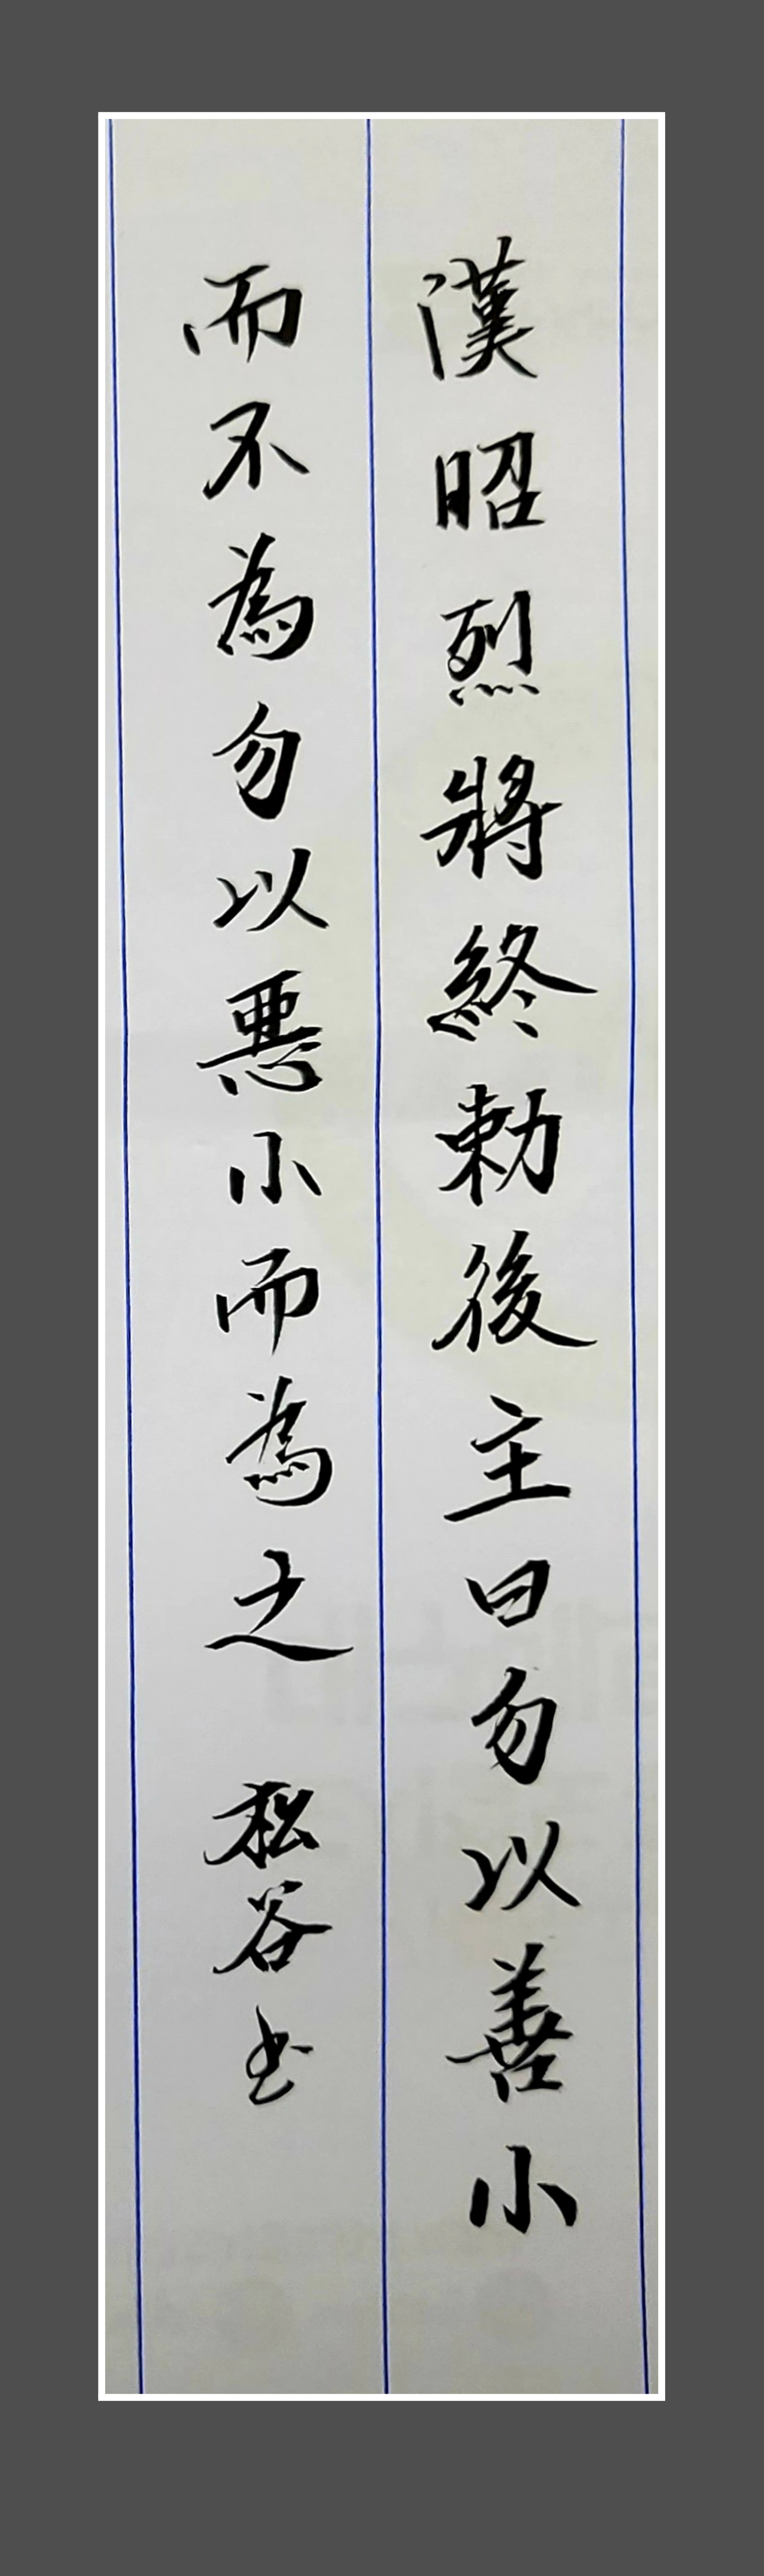 漢昭烈將終勅後主曰勿以善小
而不為勿以悪小而為之 松谷书